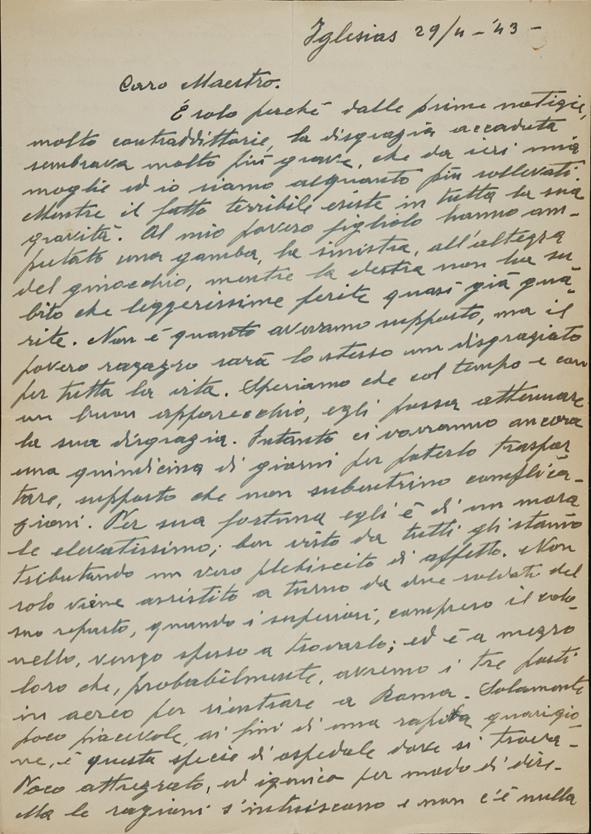 Iglesias 29/4 - '43 -
Caro Maestro.
È solo perchè dalle prime notizie,
molto contraddittorie, la disgrazia accaduta
sembrava molto più grave, che da ieri mia
moglie ed io siamo alquanto più sollevati.
Mentre il fatto terribile esiste in tutta la sua
gravità. Al mio povero figliolo hanno am-
putato una gamba, la sinistra, all'altezza
del ginocchio, mentre la destra non ha su-
bito che leggerissime ferite quasi già gua-
rite. Non è quanto avevamo supposto, ma il
povero ragazzo sarà lo stesso un disgraziato
per tutta la vita. Speriamo che col tempo e con
un buon apparecchio, egli possa attenuare
la sua disgrazia. Intanto ci vorranno ancora
una quindicina di giorni per poterlo traspor
tare, supposto che non subentrino complica-
zioni. Per sua fortuna egli è di un mora
le elevatissimo; ben visto da tutti gli stanno
tributando un vero plebiscito di affetto. Non
solo viene assistito a turno da due soldati del
suo reparto, quando i superiori, compreso il colo-
nello, vengo spesso a trovarlo; ed è a mezzo
loro che, probabilmente, avremo i tre posti
in aereo per rientrare a Roma. Solamente
poco piacevole, ai fini di una rapida guarigio
ne, è questa specie di ospedale dove si trova-
Poco attrezzato, ed igenico per modo di dire-
Ma le ragioni s'intuiscono e non c'è nulla